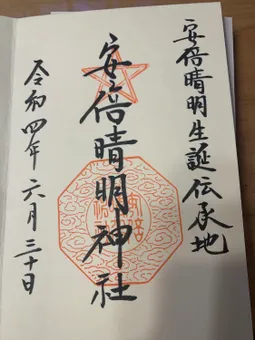 安倍晴明生誕伝承地
安倍晴明神社
令和四年六月三十日